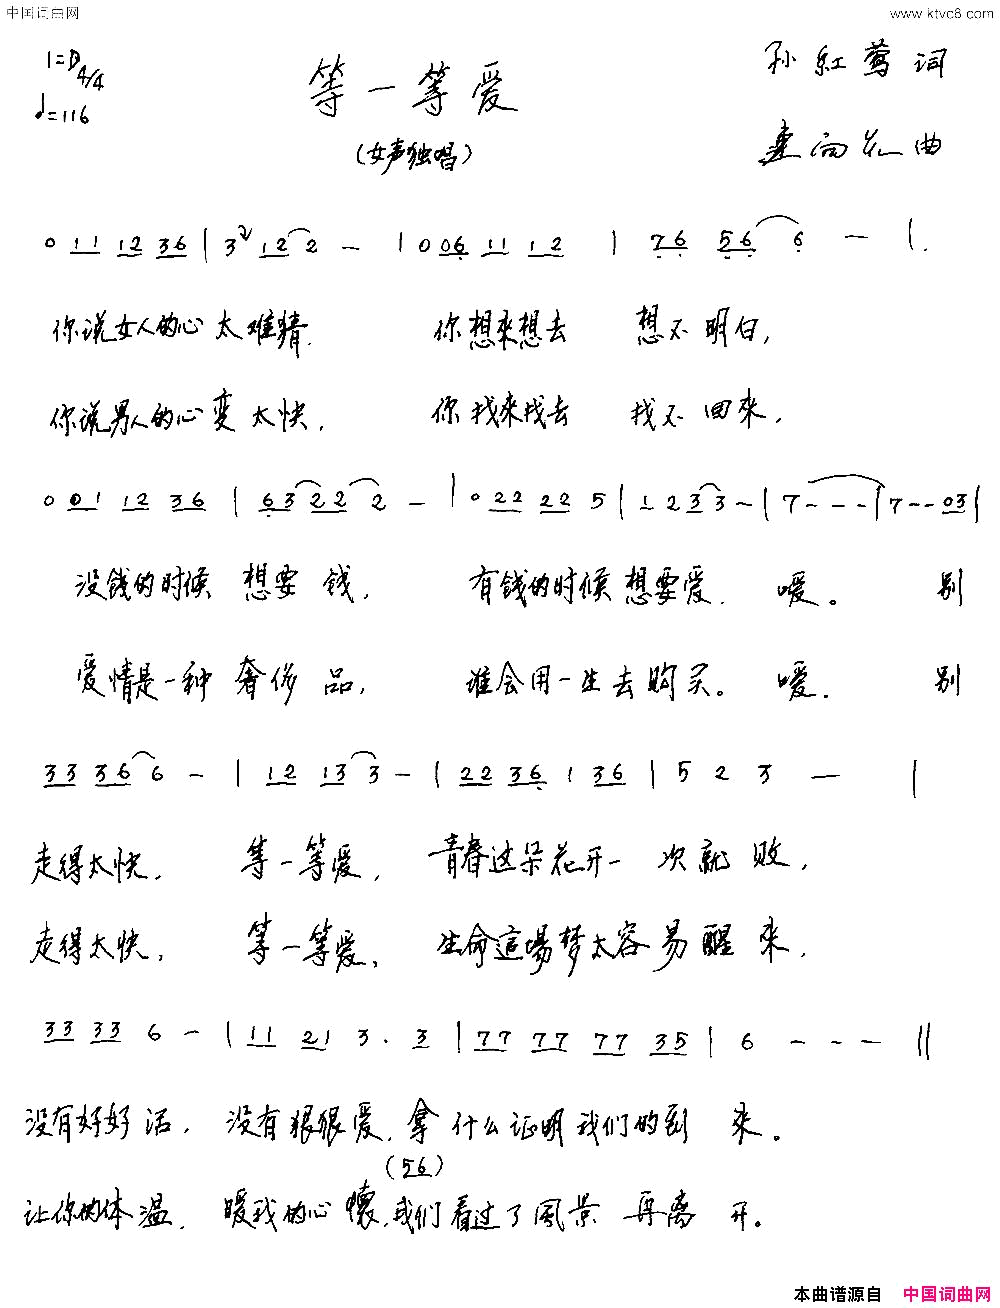 中国词曲网 www.ktvc8.com
1=D 4/4
♩=116
等一等爱
(女声独唱)
孙红莺词
曲
0 11 12 36 | 3 2 12 2 — | 0 06 11 12 | 76 56 6 — |
你说女人的心太难猜. 你想来想去 想不明白,
你说男人的心变太快. 你找来找去 找不回来.
0 01 12 36 | 63 22 2 — | 0 22 22 5 | 1 2 3 3 — | 7 - - - | 7 - - 03 |
没钱的时候 想要钱. 有钱的时候想要爱. 嗳。 别
爱情是一种奢侈品, 谁会用一生去购买。嗳. 别
33 36 6 — | 12 13 3 — | 22 36 1 36 | 5 2 3 — |
走得太快. 等一等爱, 青春这朵花开一次就败,
走得太快, 等一等爱, 生命這場梦太容易醒来,
33 33 6 — | 11 21 3 . 3 | 77 77 77 35 | 6 — — — ||
没有好好活, 没有狠狠爱, 拿什么证明我们的到来。
(56)
让你的体温, 暖我的心懷, 我们看过了風景再离开。
本曲谱源自 中国词曲网